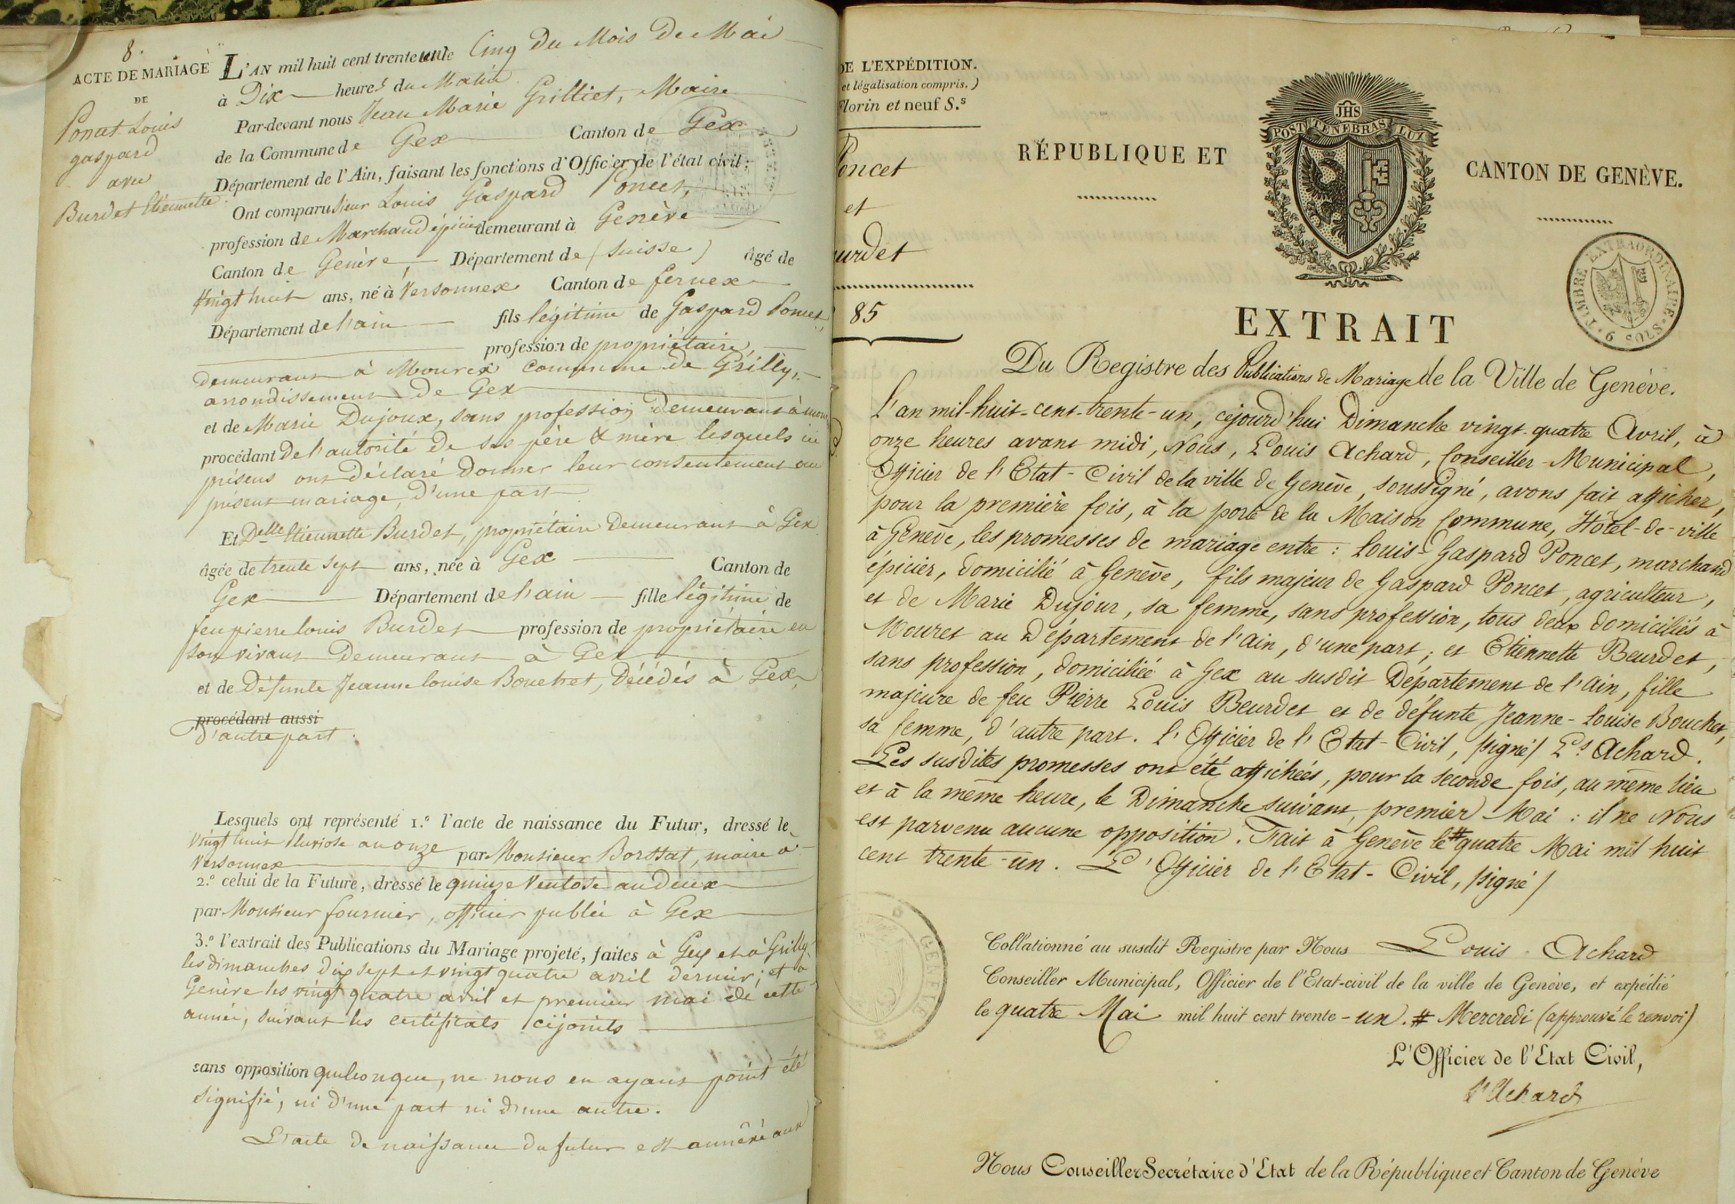 8.
ACTE DE MARIAGE
DE
Poncet Louis
gaspard
avec
Burdet Etiennette
L'AN mil huit cent trente un le Cinq du Mois De Mai
à Dix heures du Matin
Par-devant nous Jean Marie Grilliet, Maire
de la Commune de Gex Canton de Gex
Département de l'Ain, faisant les fonctions d'Officier de l'état civil;
Ont comparu Sieur Louis Gaspard Poncet,
profession de Marchand épicier demeurant à Genève
Canton de Genève, Département de (Suisse) âgé de
Vingt huit ans, né à Versonnex Canton de fernex
Département de l'ain fils légitime de Gaspard Poncet,
profession de propriétaire,
demeurant à Mourex commune de Grilly,
arrondissement de Gex
et de Marie Dujoux, sans profession, demeurant à
procédant De l'autorité De ses père & mère lesquels ici
présens ont Déclaré Donner leur consentement au
présent mariage, D'une part
Et Delle Etiennette Burdet, propriétaire Demeurant à Gex
âgée de trente sept ans, née à Gex Canton de
Gex Département de l'ain fille légitime de
feu pierre louis Burdet profession de propriétaire en
son vivant Demeurant à Gex
et de Défunte Jeanne louise Bouchet, Décédés à Gex,
procédant aussi
D'autre part.
Lesquels ont représenté 1.º l'acte de naissance du Futur, dressé le
Vingt huit Pluviose an onze par Monsieur Borssat, maire à
Versonnex
2.º celui de la Future, dressé le quinze Ventose an Deux
par Monsieur fournier, officier public à Gex
3.º l'extrait des Publications du Mariage projeté, faites à Gex et à Grilly
les dimanches dix sept et vingt quatre avril dernier; et à
Genève les vingt quatre avril et premier mai de cette
année, suivant les certificats cijoints
sans opposition quelconque, ne nous en ayant point été
signifié, ni d'une part ni d'une autre.
L'acte de naissance du futur est annéxé aux
DE L'EXPÉDITION.
et légalisation compris.)
Florin et neuf S.s
Poncet
et
urdet
85
RÉPUBLIQUE ET
JHS
POST TENEBRAS LUX
CANTON DE GENÈVE.
TIMBRE EXTRAORDINAIRE. 9 SOLS
EXTRAIT
Du Registre des Publications de Mariage de la Ville de Genève.
L'an mil-huit-cent-trente-un, cejourd'hui Dimanche vingt-quatre Avril, à
onze heures avant midi, Nous, Louis Achard, Conseiller-Municipal,
Officier de l'Etat-Civil de la ville de Genève, soussigné, avons fait afficher,
pour la première fois, à la porte de la Maison Commune, Hôtel-de-ville
à Genève, les promesses de mariage entre: Louis-Gaspard Poncet, marchand
épicier, domicilié à Genève, fils majeur de Gaspard Poncet, agriculteur,
et de Marie Dujour, sa femme, sans profession, tous deux domiciliés à
Mouret au Département de l'Ain, d'une part; et Etiennette Beurdet,
sans profession, domiciliée à Gex au susdit Département de l'Ain, fille
majeure de feu Pierre Louis Beurdet et de défunte Jeanne-Louise Bouchet,
sa femme, d'autre part. L'Officier de l'Etat-Civil, /signé/ L.s Achard.
Les susdites promesses ont été affichées, pour la seconde fois, au même lieu
et à la même heure, le Dimanche suivant, premier Mai: il ne Nous
est parvenu aucune opposition. Fait à Genève le # quatre Mai mil huit
cent trente-un. L'Officier de l'Etat-Civil, /signé/
GENÈVE
Collationné au susdit Registre par Nous Louis Achard
Conseiller Municipal, Officier de l'Etat-civil de la ville de Genève, et expédié
le quatre Mai mil huit cent trente-un. # Mercredi (approuvé le renvoi)
L'Officier de l'Etat Civil,
Ls Achard
Nous Conseiller Secrétaire d'Etat de la République et Canton de Genève